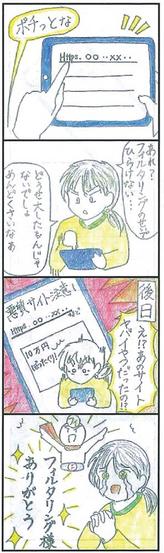 ポチっとな
Https. ○○ ‥xx‥
あれ?
フィルタリングのせいで
ひらけない…
どうせたいしたもんじゃ
ないでしょ
めんどくさいなぁ
後日
え!?あのサイト
ヤバイやつだったの!?
悪質サイト注意!
Https. ○○ ‥xx‥
10万円
フィルタリング様
ありがとう